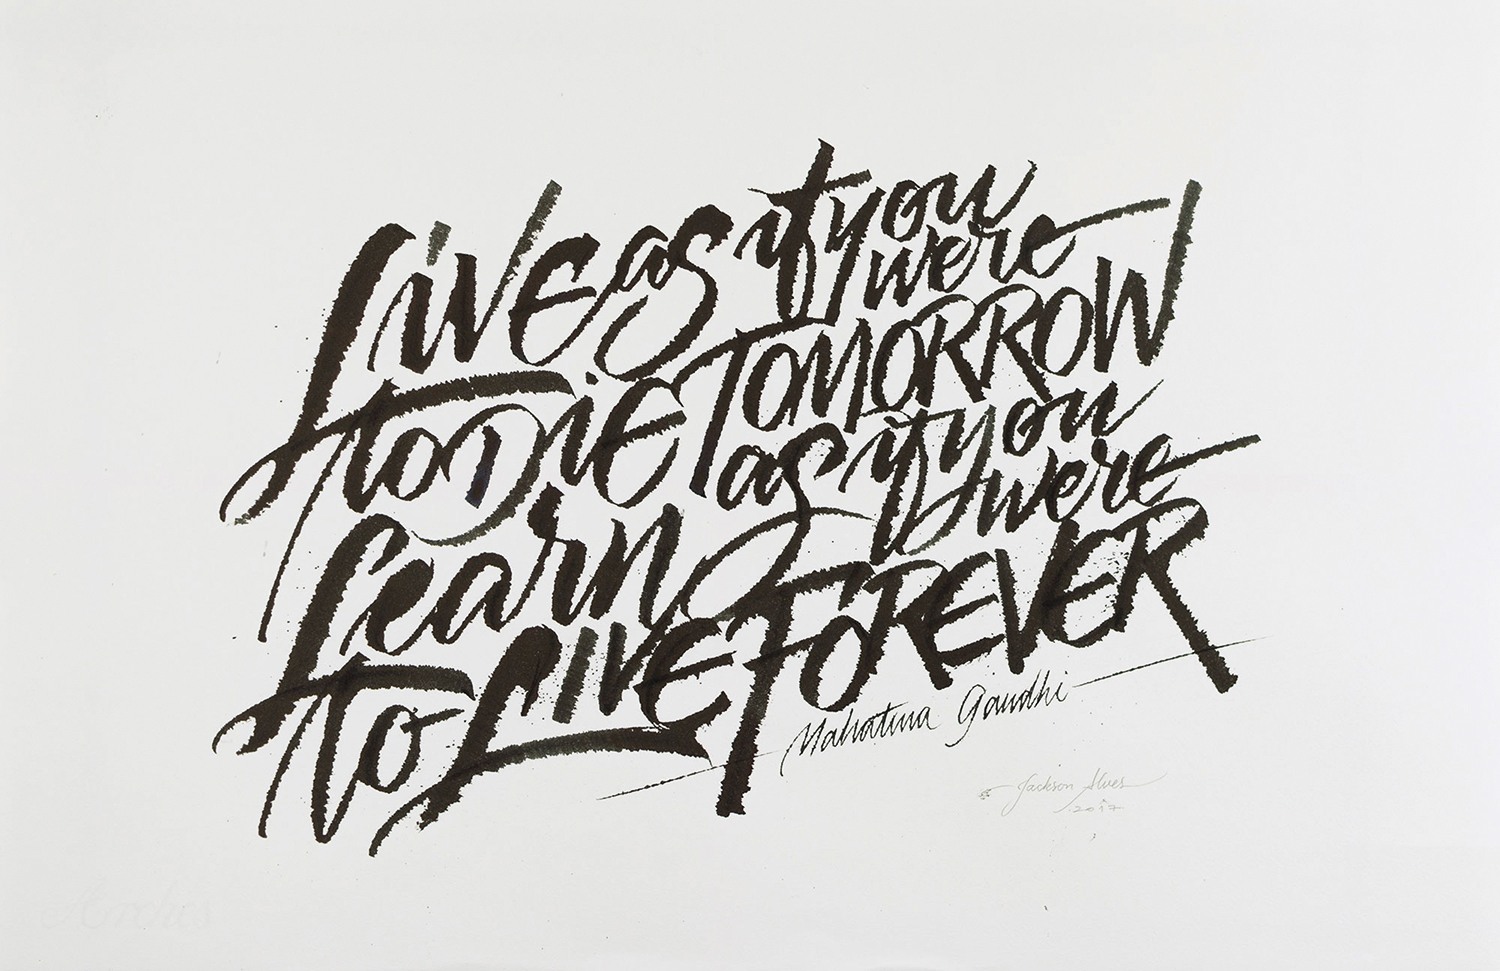 Live as if you
were
to Die TOMORROW
learn as if you
were
to LIVE FOREVER
Mahatma Gandhi
Jackson Alves
2017
Arches